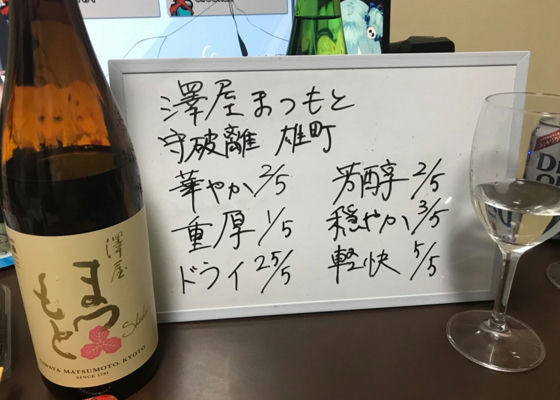 澤屋まつもと
守破離 雄町
華やか 2/5 芳醇 2/5
重厚 1/5 穏やか 3/5
ドライ 2.5/5 軽快 5/5
澤屋
まつ
もと
Shuhari
SAWAYA MATSUMOTO, KYOTO
SINCE 1791